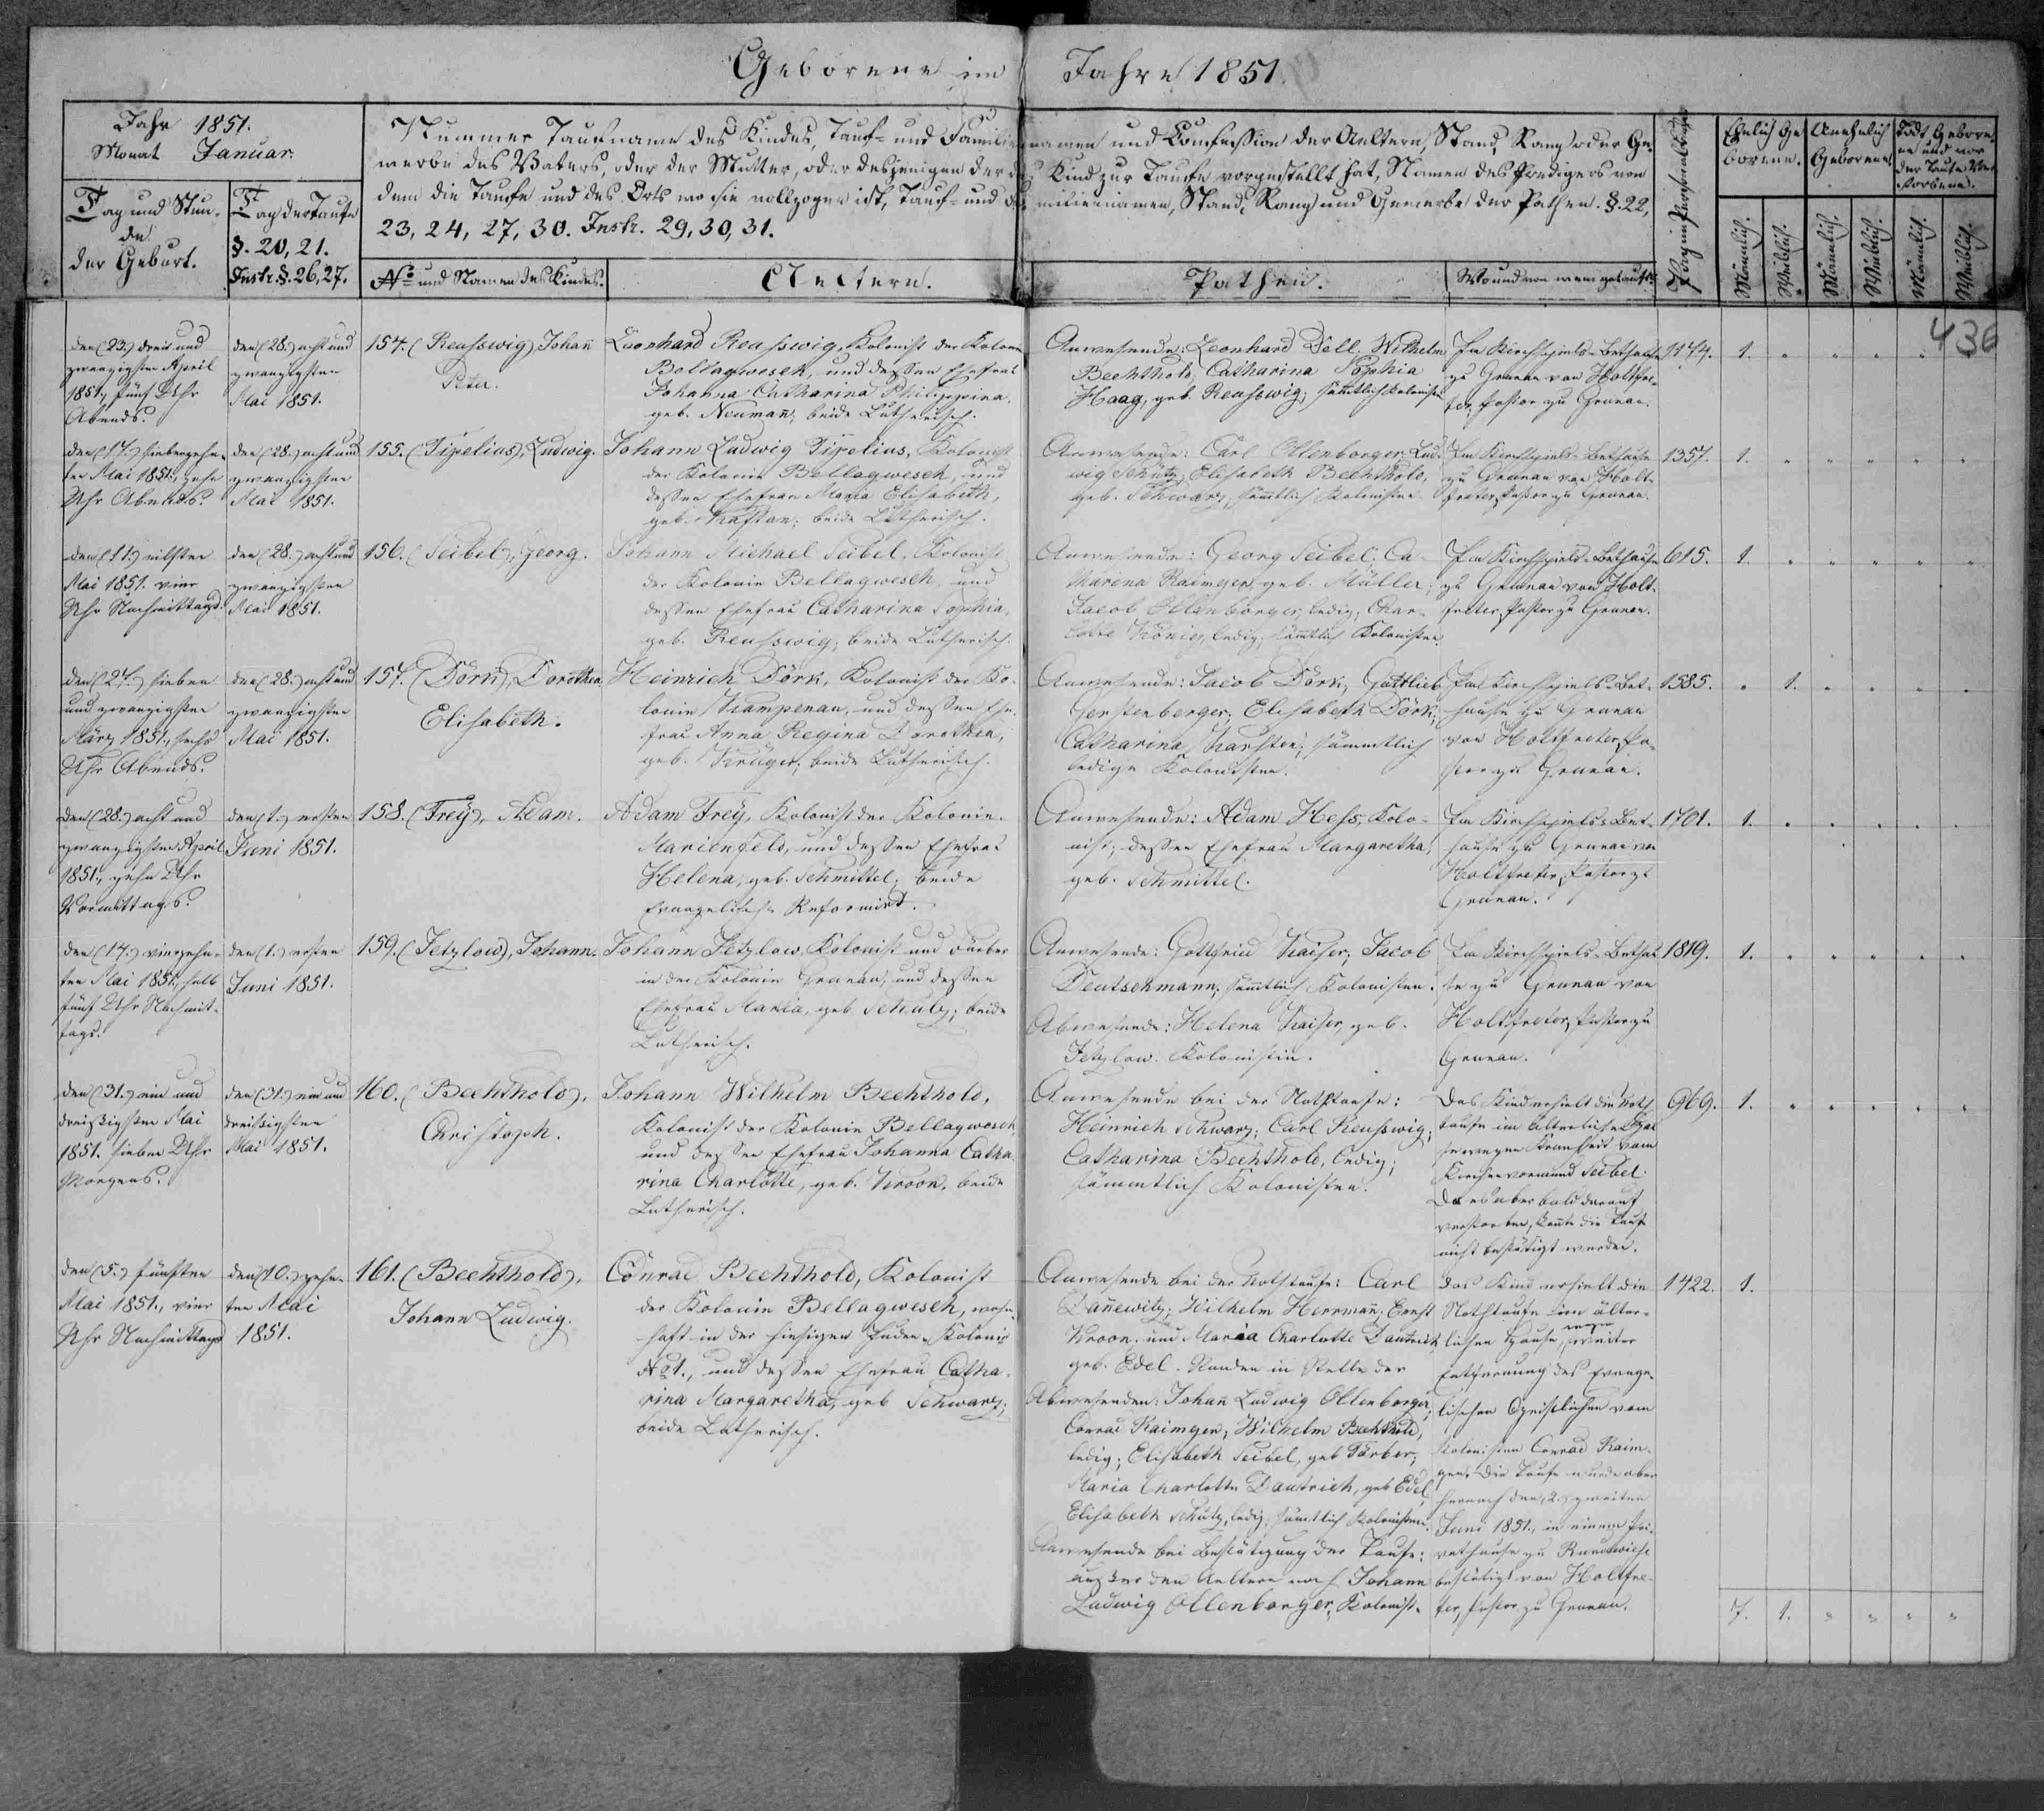 Geborene im Jahre 1851.
436
Jahr 1851.
Monat Januar.
Tag und Stun-
de
der Geburt.
Tag der Taufe
§. 20, 21.
Instr. §. 26, 27.
Nummer Taufname des Kindes, Tauf- und Familiennamen und Confession der Aeltern, Stand, Rang oder Ge-
werbe des Vaters, oder der Mutter, oder desjenigen der das Kind zur Taufe vorgestellt hat, Namen des Predigers von
dem die Taufe und des Orts wo sie vollzogen ist, Tauf- und Familiennamen, Stand, Rang und Gewerbe der Pathen. §. 22,
23, 24, 27, 30. Instr. 29, 30, 31.
No und Namen des Kindes.
Aeltern.
Pathen.
Wo und von wem getauft.
Ehelich Ge-
borene.
Unehelich
Geborene.
Todt Gebore-
ne und vor
der Taufe Ver-
storbene.
Männlich.
Weiblich.
Männlich.
Weiblich.
Männlich.
Weiblich.
den (23.) drei und
zwanzigsten April
1851., fünf Uhr
Abends.
den (28.) acht und
zwanzigsten
Mai 1851.
154. (Reusswig) Johann
Peter.
Leonhard Reusswig, Kolonist der Kolonie
Bellagwesch, und dessen Ehefrau
Johanna Catharina Philippina,
geb. Neumann; beide Lutherisch.
Anwesende: Leonhard Dell, Wilhelm
Bechthold, Catharina Sophia
Haag, geb. Reusswig; sämtlich Kolonisten
Im Kirchspiels-Bethause
zu Grunau von Holtfre-
ter, Pastor zu Grunau.
1174. 1. " " " "
den (17.) siebenzehn-
ten Mai 1851., zehn
Uhr Abends.
den (28.) acht und
zwanzigsten
Mai 1851.
155. (Tipelius), Ludwig.
Johann Ludwig Tipelius, Kolonist
der Kolonie Bellagwesch, und
dessen Ehefrau Maria Elisabeth,
geb. Kaftan; beide Lutherisch.
Anwesende: Carl Ollenborger; Lud-
wig Schütz; Elisabeth Bechthold,
geb. Schwarz, sämtlich Kolonisten
Im Kirchspiels-Bethause
zu Grunau von Holt-
freter, Pastor zu Grunau.
1357. 1. " " " " "
den (11.) eilften
Mai 1851. vier
Uhr Nachmittags.
den (28.) acht und
zwanzigsten
Mai 1851.
156. (Seibel), Georg.
Johann Michael Seibel, Kolonist
der Kolonie Bellagwesch, und
dessen Ehefrau Catharina Sophia,
geb. Reusswig; beide Lutherisch.
Anwesende: Georg Seibel; Ca-
tharina Raimgen, geb. Müller;
Jacob Ollenborger, ledig; Char-
lotte König, ledig; sämtlich Kolonisten
Im Kirchspiels-Bethause
zu Grunau von Holt-
freter, Pastor zu Grunau.
615. 1. " " " " "
den (27.) sieben
und zwanzigsten
März 1851., sechs
Uhr Abends.
den (28.) acht und
zwanzigsten
Mai 1851.
157. (Dörk), Dorothea
Elisabeth.
Heinrich Dörk, Kolonist der Ko-
lonie Kampenau, und dessen Ehe-
frau Anna Regina Dorothea,
geb. Krüger; beide Lutherisch.
Anwesende: Jacob Dörk; Gottlieb
Gerstenberger; Elisabeth Dörk;
Catharina Karsten; sämmtlich
ledige Kolonisten.
Im Kirchspiels-Bet-
hause zu Grunau
von Holtfreter, Pa-
stor zu Grunau.
1585. " 1. " " " "
den (28.) acht und
zwanzigsten April
1851., zehn Uhr
Vormittags.
den (1.) ersten
Juni 1851.
158. (Frey), Adam.
Adam Frey, Kolonist der Kolonie
Marienfeld, und dessen Ehefrau
Helena, geb. Schmittel; beide
Evangelisch-Reformirt.
Anwesende: Adam Hess, Kolo-
nist; dessen Ehefrau Margaretha,
geb. Schmittel.
Im Kirchspiels-Bet-
hause zu Grunau von
Holtfreter, Pastor zu
Grunau.
1701. 1. " " " " "
den (14.) vierzehn-
ten Mai 1851., halb
fünf Uhr Nachmit-
tags.
den (1.) ersten
Juni 1851.
159. (Jetzlow), Johann.
Johann Jetzlow, Kolonist und Färber
in der Kolonie Grunau, und dessen
Ehefrau Maria, geb. Schulz; beide
Lutherisch.
Anwesende: Gottfried Kaiser; Jacob
Deutschmann; sämtlich Kolonisten.
Abwesende: Helena Kaiser, geb.
Jetzlow. Kolonistin.
Im Kirchspiels-Bethau-
se zu Grunau von
Holtfreter, Pastor zu
Grunau.
1819. 1. " " " " "
den (31.) ein und
dreißigsten Mai
1851. sieben Uhr
Morgens.
den (31.) ein und
dreißigsten
Mai 1851.
160. (Bechthold),
Christoph.
Johann Wilhelm Bechthold,
Kolonist der Kolonie Bellagwesch,
und dessen Ehefrau Johanna Catha-
rina Charlotte, geb. Kroon, beide
Lutherisch.
Anwesende bei der Nothtaufe:
Heinrich Schwarz; Carl Reusswig;
Catharina Bechthold, ledig;
sämmtlich Kolonisten.
Das Kind erhielt die Noth-
taufe im älterlichen Hau-
se wegen Krankheit vom
Kirchenvormund Seibel.
Da es aber bald darauf
verstorben, konnte die Taufe
nicht bestätigt werden.
969. 1. " " " " "
den (5.) fünften
Mai 1851., vier
Uhr Nachmittags
den (10.) zehn-
ten Mai
1851.
161. (Bechthold),
Johann Ludwig.
Conrad Bechthold, Kolonist
der Kolonie Bellagwesch, wohn-
haft in der hiesigen Juden-Kolonie
No 1., und dessen Ehefrau Catha-
rina Margaretha, geb. Schwarz;
beide Lutherisch.
Anwesende bei der Nothtaufe: Carl
Dannewitz; Wilhelm Herrmann; Ernst
Kroon, und Maria Charlotte Dautrich,
geb. Edel. Standen in Stelle der
Abwesenden: Johann Ludwig Ollenborger;
Conrad Raimgen; Wilhelm Bechthold,
ledig; Elisabeth Seibel, geb. Färber;
Maria Charlotte Dautrich, geb. Edel;
Elisabeth Schütz, ledig; sämtlich Kolonisten.
Anwesende bei Bestätigung der Taufe:
außer den Aeltern noch Johann
Ludwig Ollenborger, Kolonist.
Das Kind erhielt die
Nothtaufe im älter-
lichen Hause, wegen weiter
Entfernung des Evange-
lischen Geistlichen vom
Kolonisten Conrad Raim-
gen. Die Taufe wurde aber
hernach den (2.) zweiten
Juni 1851., in einem Pri-
vathause zu Rundewiese
bestätigt von Holtfre-
ter, Pastor zu Grunau.
1422. 1.
7. 1. " " " "